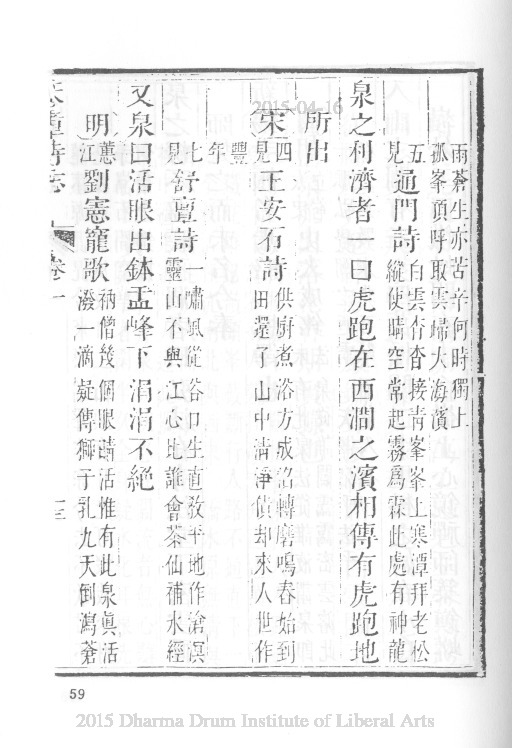 雨蒼生亦苦辛何時獨上
孤峯頂呼取雲歸大海濱
五見通門詩白雲杳杳接青峯峯上寒潭拜老松
縱使晴空常起霧爲霖此處有神龍
泉之利濟者 曰虎跑在西澗之濱相傳有虎跑地
所出
宋四見王安石詩供廚煮浴方成沠轉磨鳴舂始到
田還了山中清淨債却來人世作
豐
年
七見舒亶詩一嘯風從谷口生直教平地作滄溟
靈山不與江心比誰會茶仙補水經
又泉曰活眼出鉢盂峰下涓涓不絕
明蕙江劉憲寵歌衲僧幾個眼睛活惟有此泉眞活
潑一滴疑傳獅子乳九天倒瀉蒼
天童寺志 卷一 十三
2015-04-16
59
2015 Dharma Drum Institute of Liberal Arts